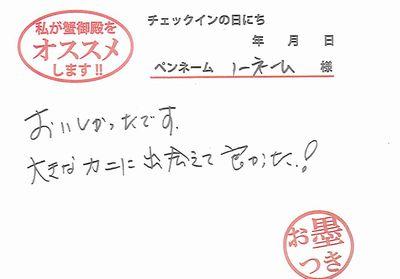 私が蟹御殿を
オススメ
します!!
チェックインの日にち
年 月 日
ペンネーム ハーネム 様
おいしかったです.
大きなカニに出会えて良かった.!
お墨
つき